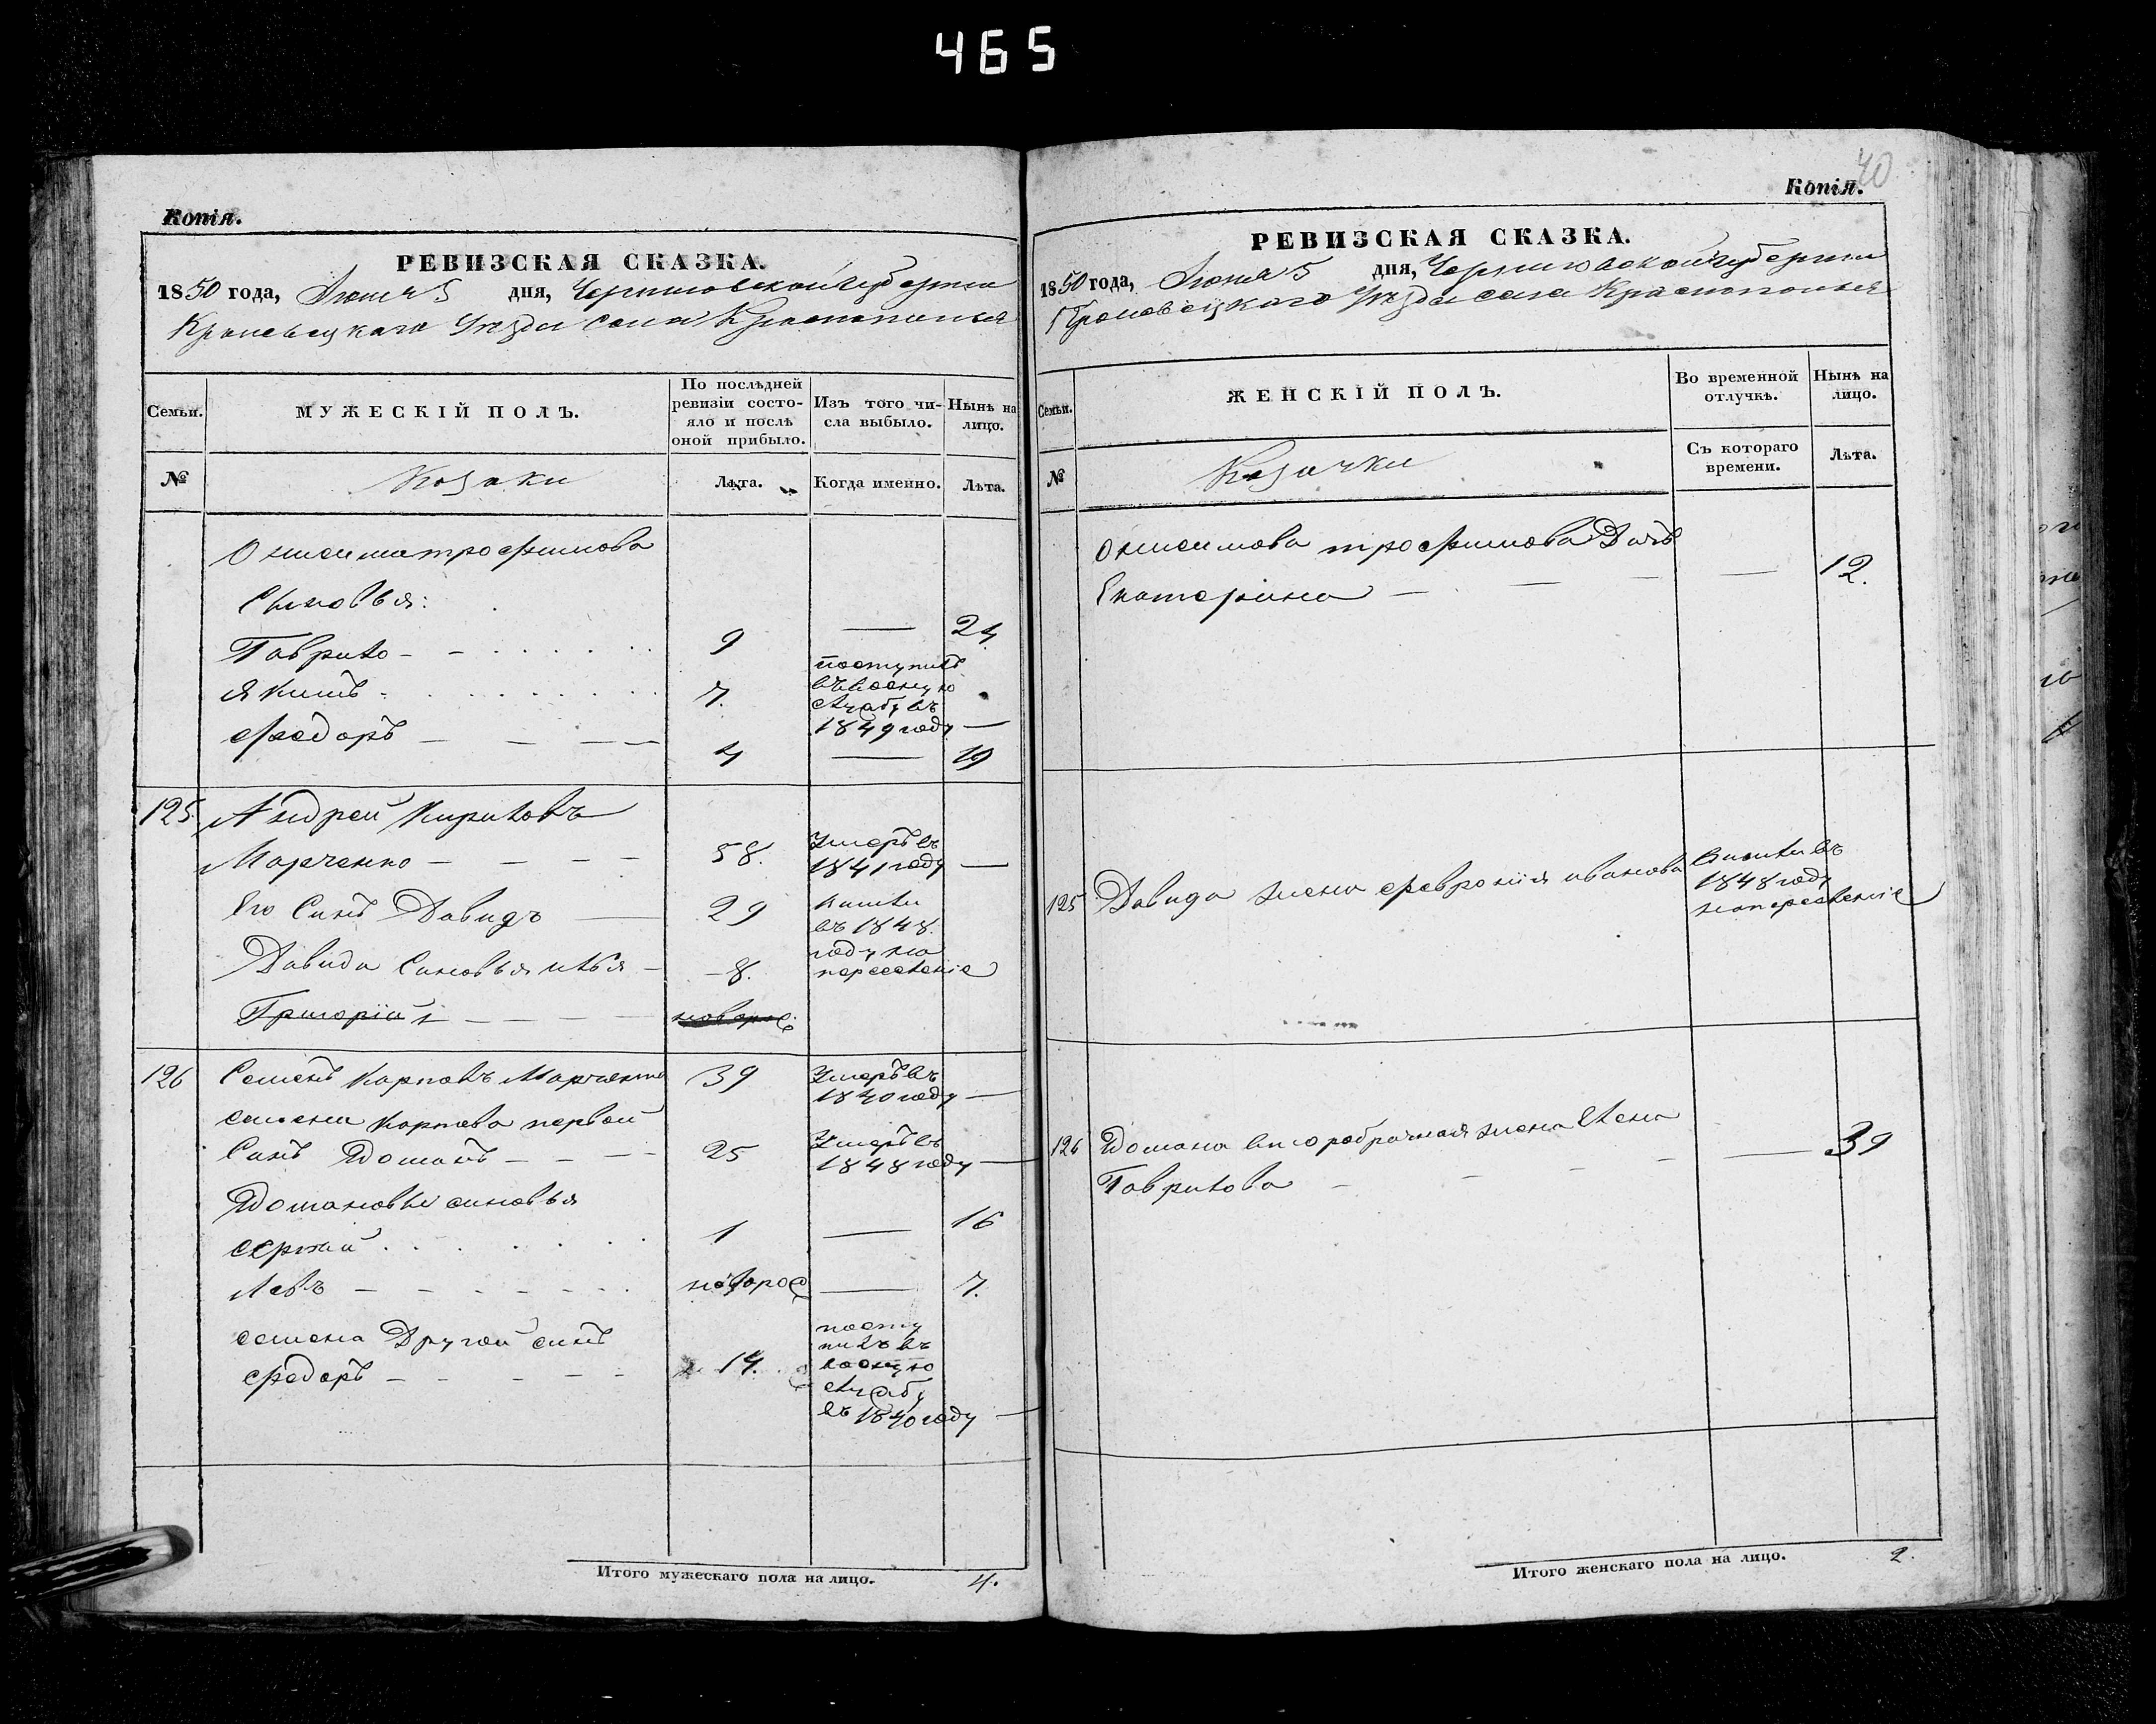 465
Копія.
РЕВИЗСКАЯ СКАЗКА.
1850 года, Июня 5 дня, Черниговской губернии
Кролевецкаго Уезда села Краснополья
Семьи.
МУЖЕСКІЙ ПОЛЪ.
По послѣдней ревизіи состо-яло и послѣ оной прибыло.
Изъ того чи-сла выбыло.
Нынѣ на лицо.
№
Козаки
Лѣта.
Когда именно.
Лѣта.
Онисима трофимова
Сыновья:
Гаврило 9 — 24
Якимъ 7. поступилъ въ военную службу въ 1849 году —
Феодоръ 4 — 19
125 Андрей Кириловъ
Марченко 58. Умеръ въ 1841 году —
Его Синъ Давидъ 29 вишли въ 1848. году на переселеніе
Давида Синовья илья 8.
Григорій новорос:
126 Семенъ Карповъ Марченко 39 Умеръ въ 1840 году —
семена Карпова первой
Синъ Домапъ 25 Умеръ въ 1848 году —
Домановы синовья
Сергий 1 — 16
Левъ новорос — 7.
семена Другой синъ
Федоръ 14. поступилъ въ военную службу въ 1840 году —
Итого мужескаго пола на лицо. 4.
40
Копія.
РЕВИЗСКАЯ СКАЗКА.
1850 года, Июня 5 дня, Черниговской губернии
Кролевецкаго Уезда села Краснополья
Семьи.
ЖЕНСКІЙ ПОЛЪ.
Во временной отлучкѣ.
Нынѣ на лицо.
№
Козачки
Съ котораго времени.
Лѣта.
Онисимова трофимова Дочь
Екатерина — 12.
125 Давида жена Феврония иванова вишли въ 1848 году на переселеніе
126 Домана второбрачная жена Елена
Гаврилова — 39
Итого женскаго пола на лицо. 2.